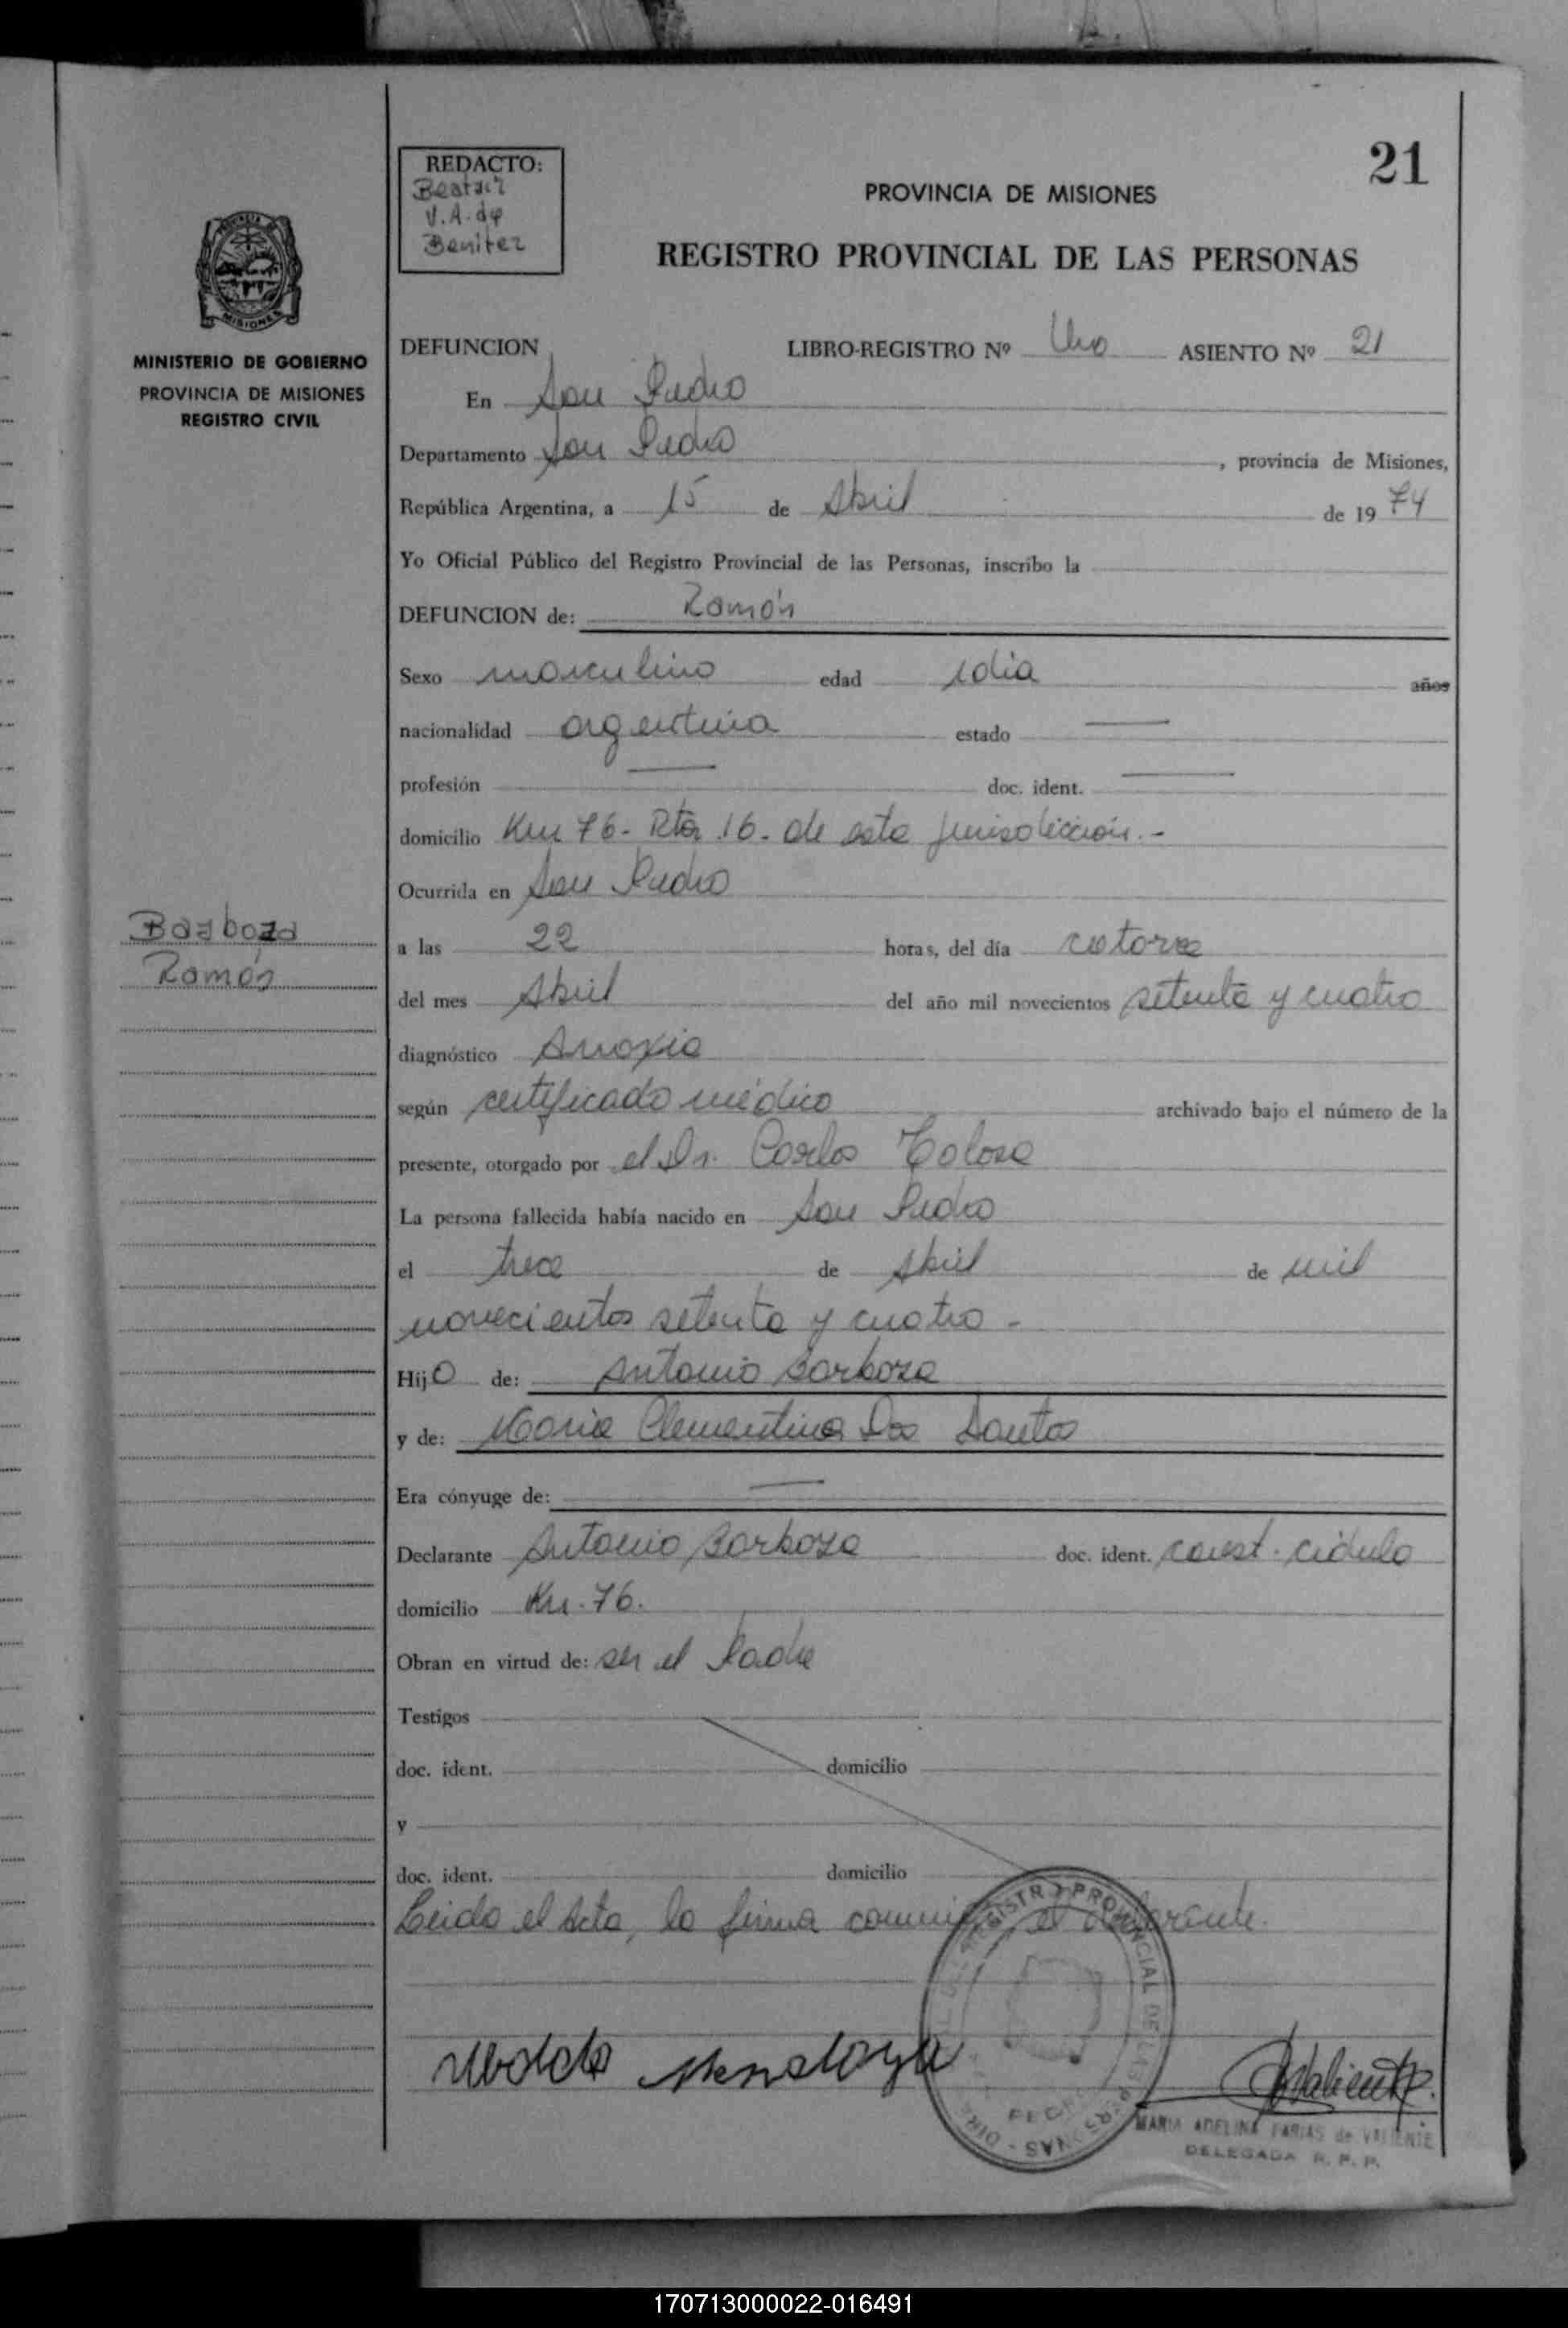 21
REDACTO:
Beatriz
V.A. de
Benitez
PROVINCIA DE MISIONES
REGISTRO PROVINCIAL DE LAS PERSONAS
MISIONES
MINISTERIO DE GOBIERNO
PROVINCIA DE MISIONES
REGISTRO CIVIL
DEFUNCION LIBRO-REGISTRO Nº Uno ASIENTO Nº 21
En San Pedro
Departamento San Pedro, provincia de Misiones,
República Argentina, a 15 de Abril de 1974
Yo Oficial Público del Registro Provincial de las Personas, inscribo la
DEFUNCION de: Ramón
Sexo masculino edad 1 dia años
nacionalidad argentina estado —
profesión — doc. ident. —
domicilio Km 76 - Rta 16 - de esta jurisdicción.-
Ocurrida en San Pedro
Barboza
Ramón
a las 22 horas, del día catorce
del mes Abril del año mil novecientos setenta y cuatro
diagnóstico Anoxia
según certificado médico archivado bajo el número de la
presente, otorgado por el Dr. Carlos Tolosa
La persona fallecida había nacido en San Pedro
el trece de Abril de mil
novecientos setenta y cuatro -
Hijo de: Antonio Barboza
y de: Maria Clementina Dos Santos
Era cónyuge de: —
Declarante Antonio Barboza doc. ident. const. cédula
domicilio Km. 76.
Obran en virtud de: ser el Padre
Testigos
doc. ident. domicilio
y
doc. ident. domicilio
Leida el Acta, la firma conmigo el declarante.
REGISTRO PROVINCIAL DE LAS PERSONAS - DIRE
MARIA ADELINA FARIAS de VALIENTE
DELEGADA R. P. P.
170713000022-016491